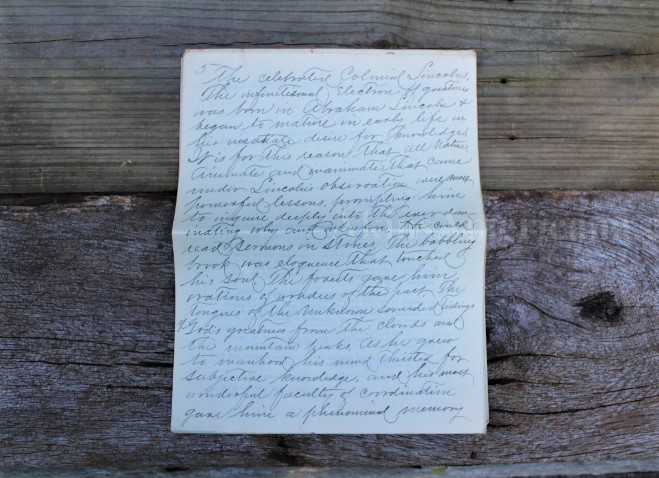 5 The celebrated Colonial Lincolns.
The infinitismal Electron of greatness
was born in Abraham Lincoln &
began to mature in early life in
his insatiate desire for Knowledge,
It is for this reason that all Nature
animate and inanimate that came
under Lincolns observation were most
powerful lessons, prompting him
to inquire deeply into the ever dom-
inating why and wherefore. He could
read Sermons in Stones, The babbling
brook was eloquence that touched
his soul The forests gave him
orations of wonders of the past The
tongues of the Unknown sounded tidings
of Gods greatness from the clouds and
the mountain peaks. As he grew
to manhood his mind thirsted for
subjective knowledge, and his most
wonderful faculty of coordination
gave him a phenominal memory